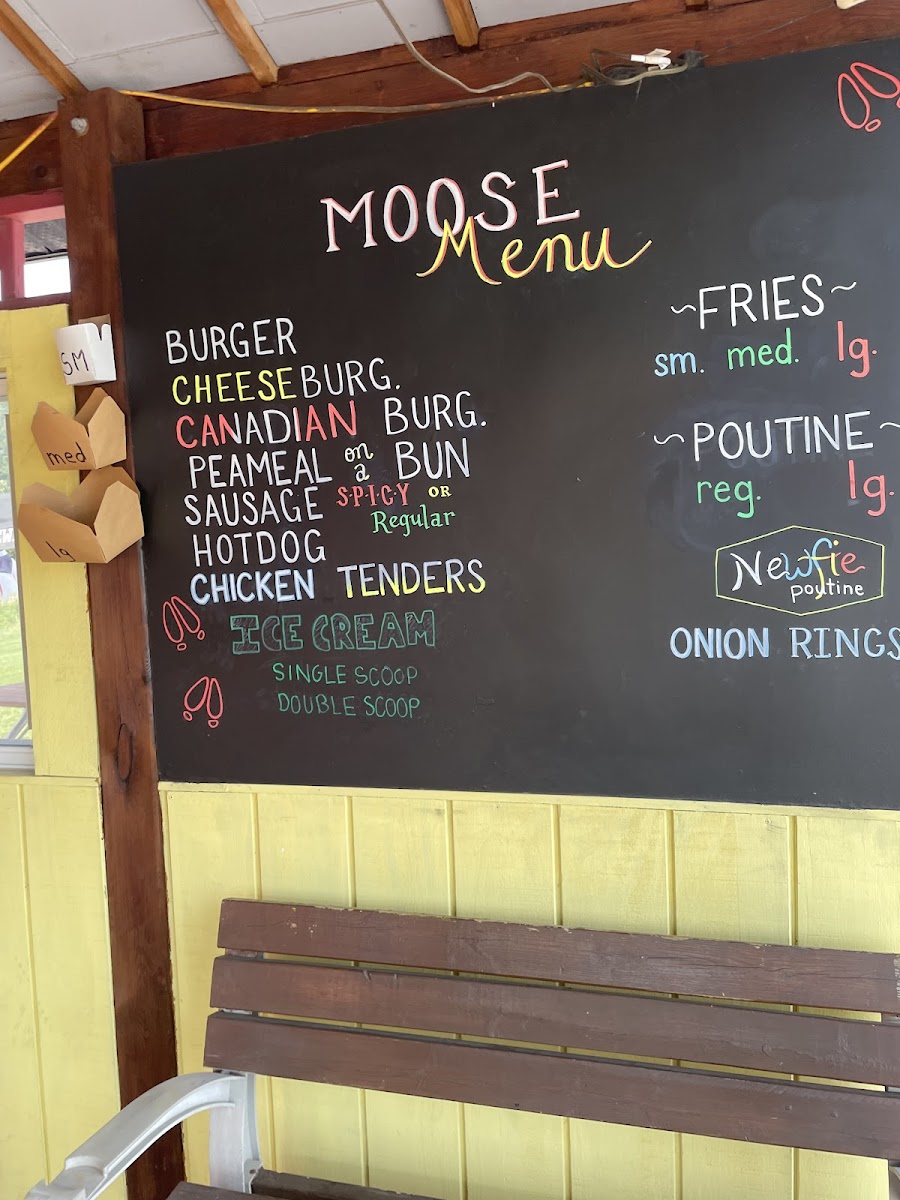 MOOSE
Menu
BURGER
CHEESEBURG.
CANADIAN BURG.
PEAMEAL on a BUN
SAUSAGE SPICY OR
Regular
HOTDOG
CHICKEN TENDERS
ICE CREAM
SINGLE SCOOP
DOUBLE SCOOP
~FRIES~
sm. med. lg.
~POUTINE~
reg. lg.
Newfie
poutine
ONION RINGS
SM
med
lg